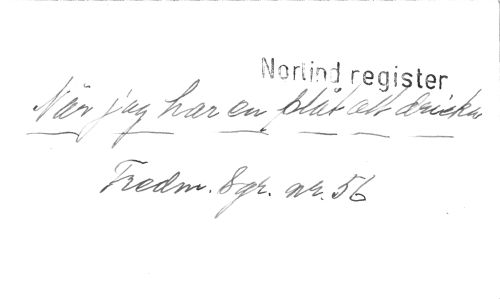 Norlind register
När jag har en plåt att dricka
Fredm. Sgr. nr. 56